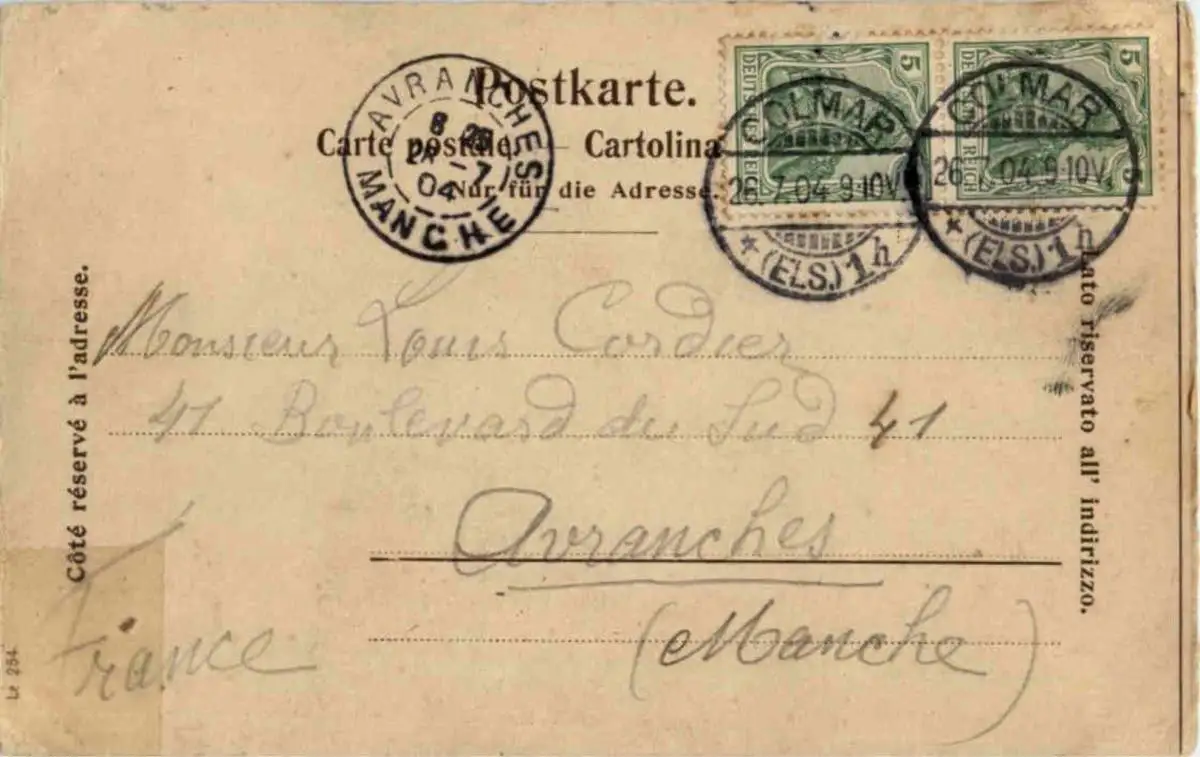 Postkarte.
Carte postale. — Cartolina
Nur für die Adresse.
AVRANCHES
8
28 -7
04
MANCHE
5
DEUTSCHES REICH
5
DEUTSCHES REICH
COLMAR
26.7.04.9-10V.
* (ELS.) 1h
COLMAR
26.7.04.9-10V.
* (ELS.) 1h
Côté réservé à l'adresse.
Lato riservato all' indirizzo.
Monsieur Louis Cordier
41 Boulevard du Sud 41
Avranches
(Manche)
France
Lr 254